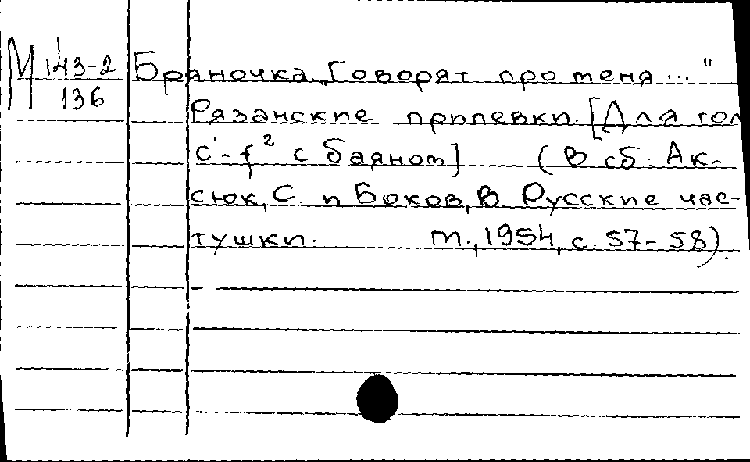 М 143-2
136
Браночка „Говорят про меня..."
Рязанские припевки. [Для гол
c'-f² с баяном] (В сб. Ак-
сюк, С. и Боков, В. Русские час-
тушки. М., 1954, с. 57-58).